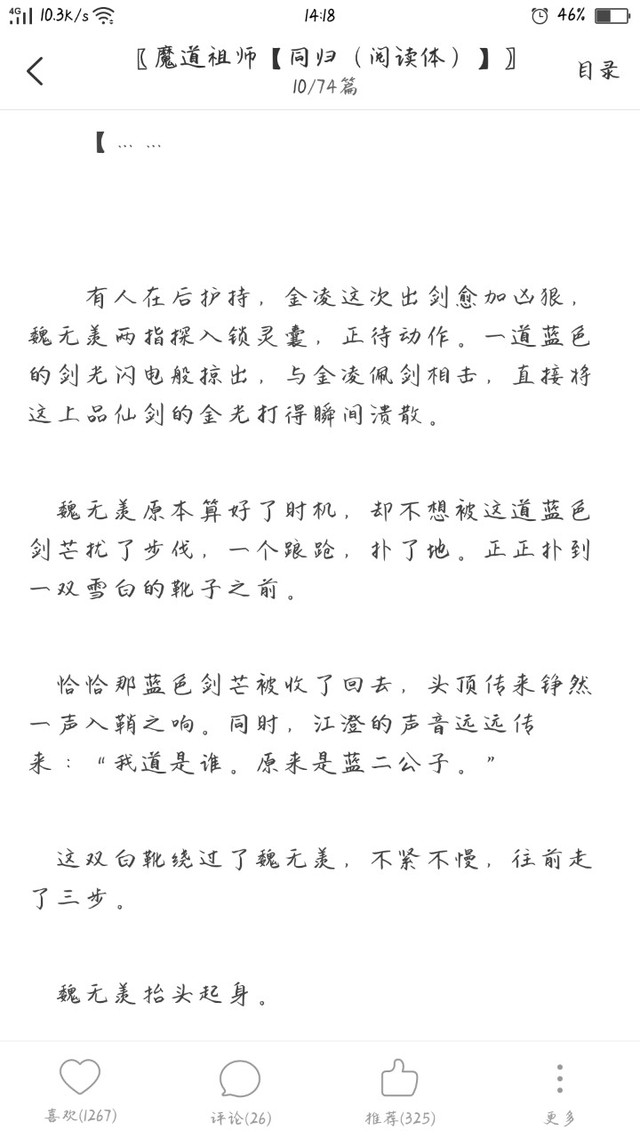 4G 10.3K/s 14:18 46%
〖魔道祖师【同归（阅读体）】〗
10/74篇
目录
【……
有人在后护持，金凌这次出剑愈加凶狠，
魏无羡两指探入锁灵囊，正待动作。一道蓝色
的剑光闪电般掠出，与金凌佩剑相击，直接将
这上品仙剑的金光打得瞬间溃散。
魏无羡原本算好了时机，却不想被这道蓝色
剑芒扰了步伐，一个踉跄，扑了地。正正扑到
一双雪白的靴子之前。
恰恰那蓝色剑芒被收了回去，头顶传来铮然
一声入鞘之响。同时，江澄的声音远远传
来：“我道是谁。原来是蓝二公子。”
这双白靴绕过了魏无羡，不紧不慢，往前走
了三步。
魏无羡抬头起身。
喜欢(1267) 评论(26) 推荐(325) 更多